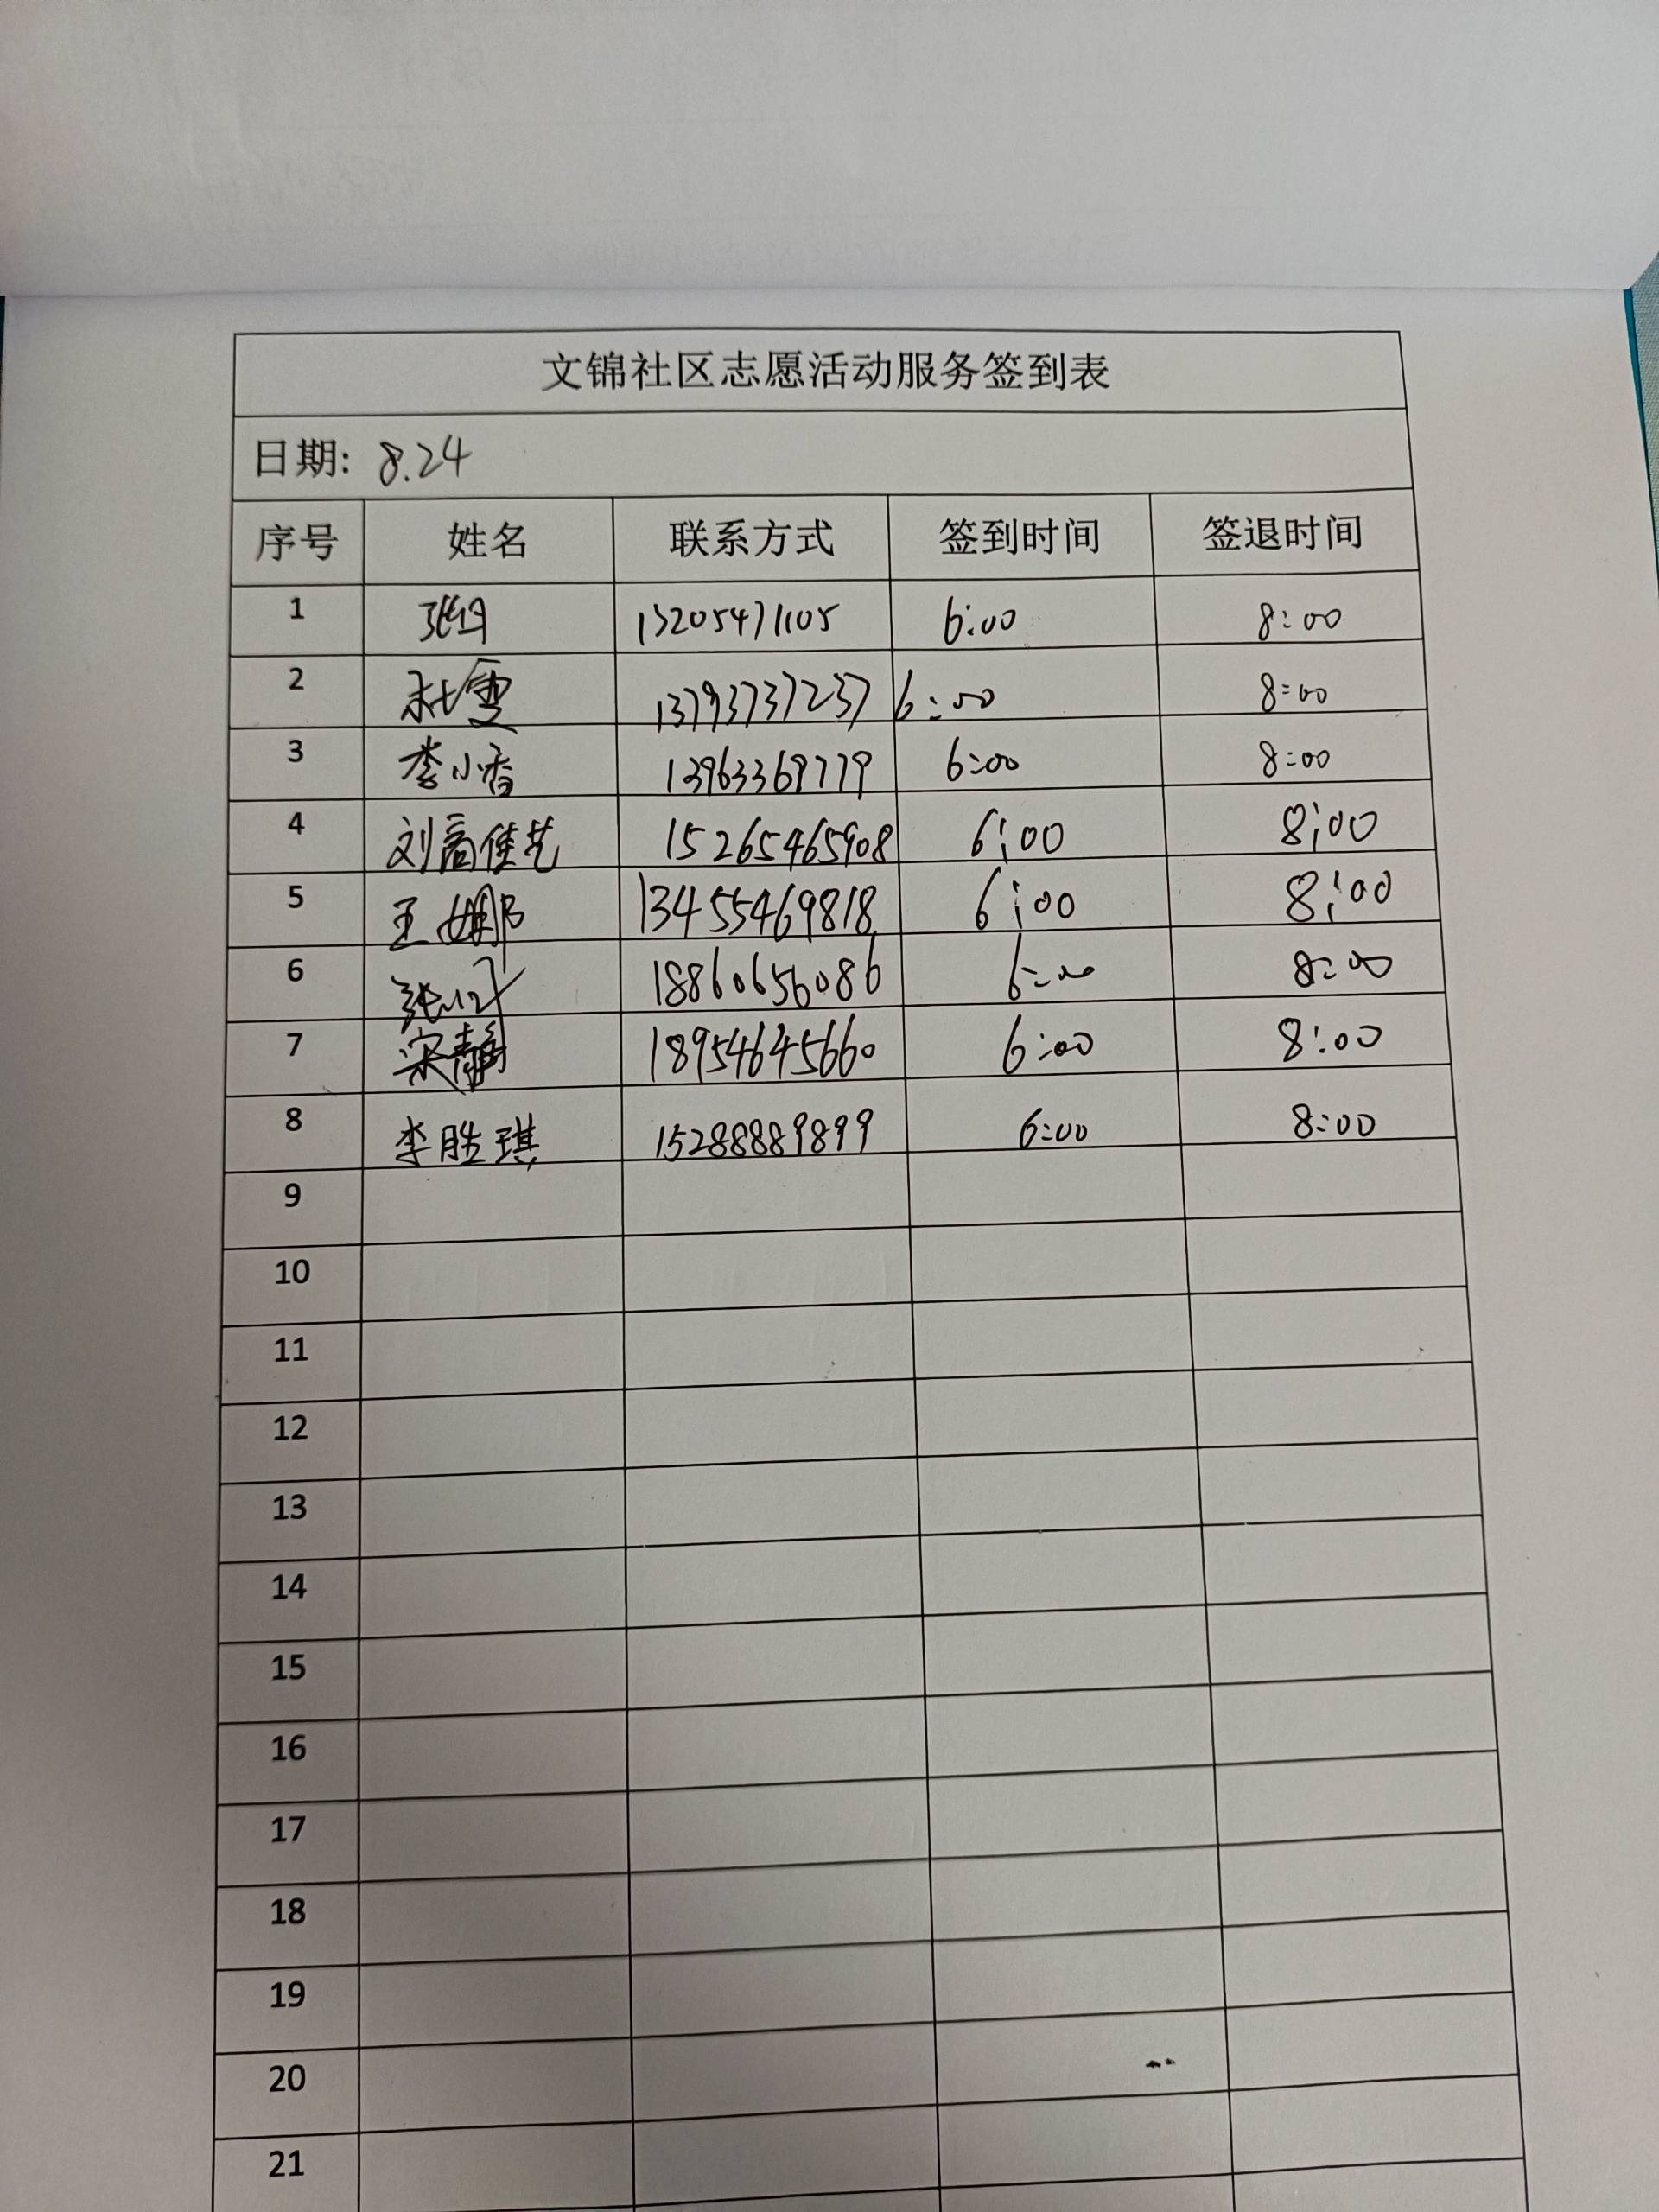 文锦社区志愿活动服务签到表
日期: 8.24
序号 姓名 联系方式 签到时间 签退时间
1 13205471105 6:00 8:00
2 杜雯 13793737237 6:00 8:00
3 李小香 13963369779 6:00 8:00
4 刘高佳艺 15265465908 6:00 8:00
5 王娜 13455469818 6:00 8:00
6 18860656086 6:00 8:00
7 宋静 18954645660 6:00 8:00
8 李胜琪 15288889899 6:00 8:00
9
10
11
12
13
14
15
16
17
18
19
20
21